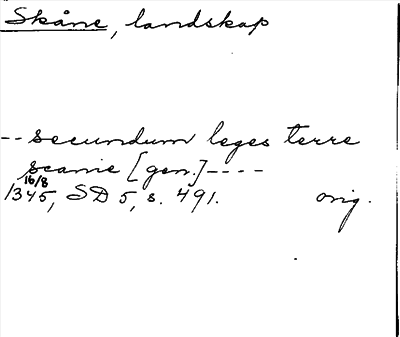 Skåne, landskap
-- secundum leges terre
scanie [gen.] ----
16/8
1345, SD 5, s. 491. orig.